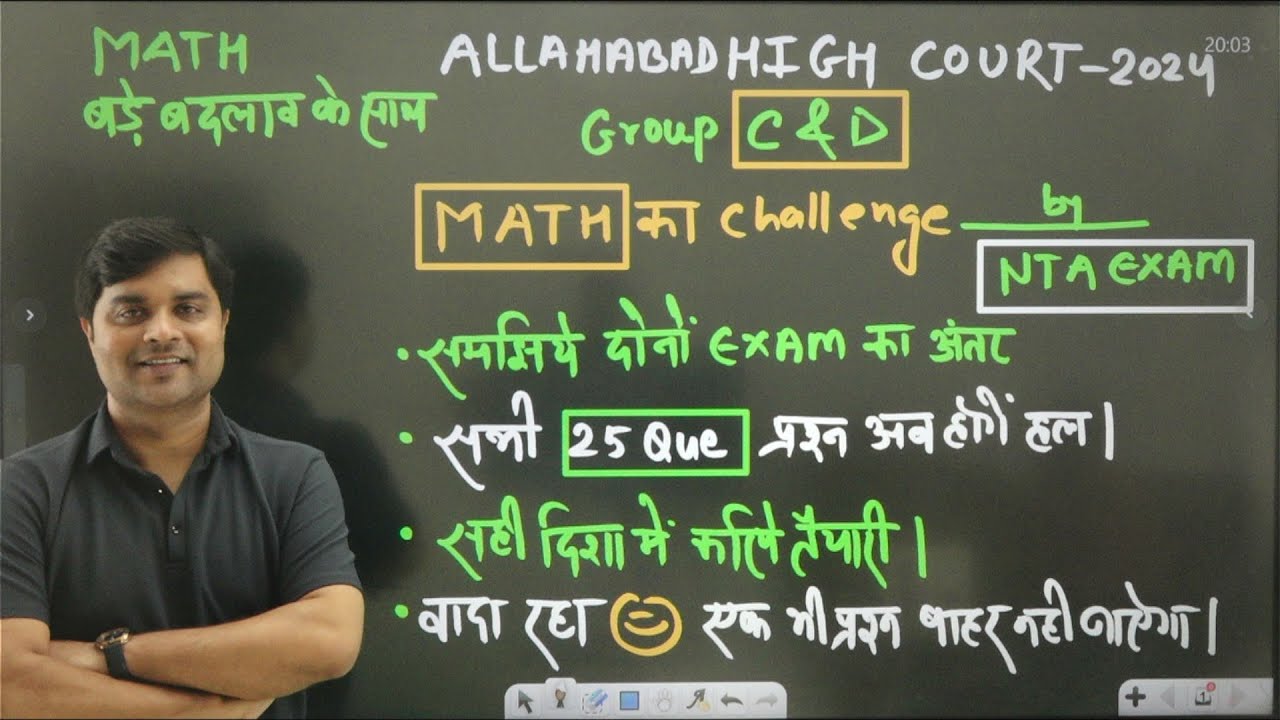 MATH
बड़े बदलाव के साथ
ALLAHABAD HIGH COURT-2024
20:03
Group C & D
MATH का challenge by
NTA EXAM
• समझिये दोनों EXAM का अंतर
• सभी 25 Que प्रश्न अब होगें हल।
• सही दिशा में करिये तैयारी।
• वादा रहा एक भी प्रश्न बाहर नही जाऐगा।
1